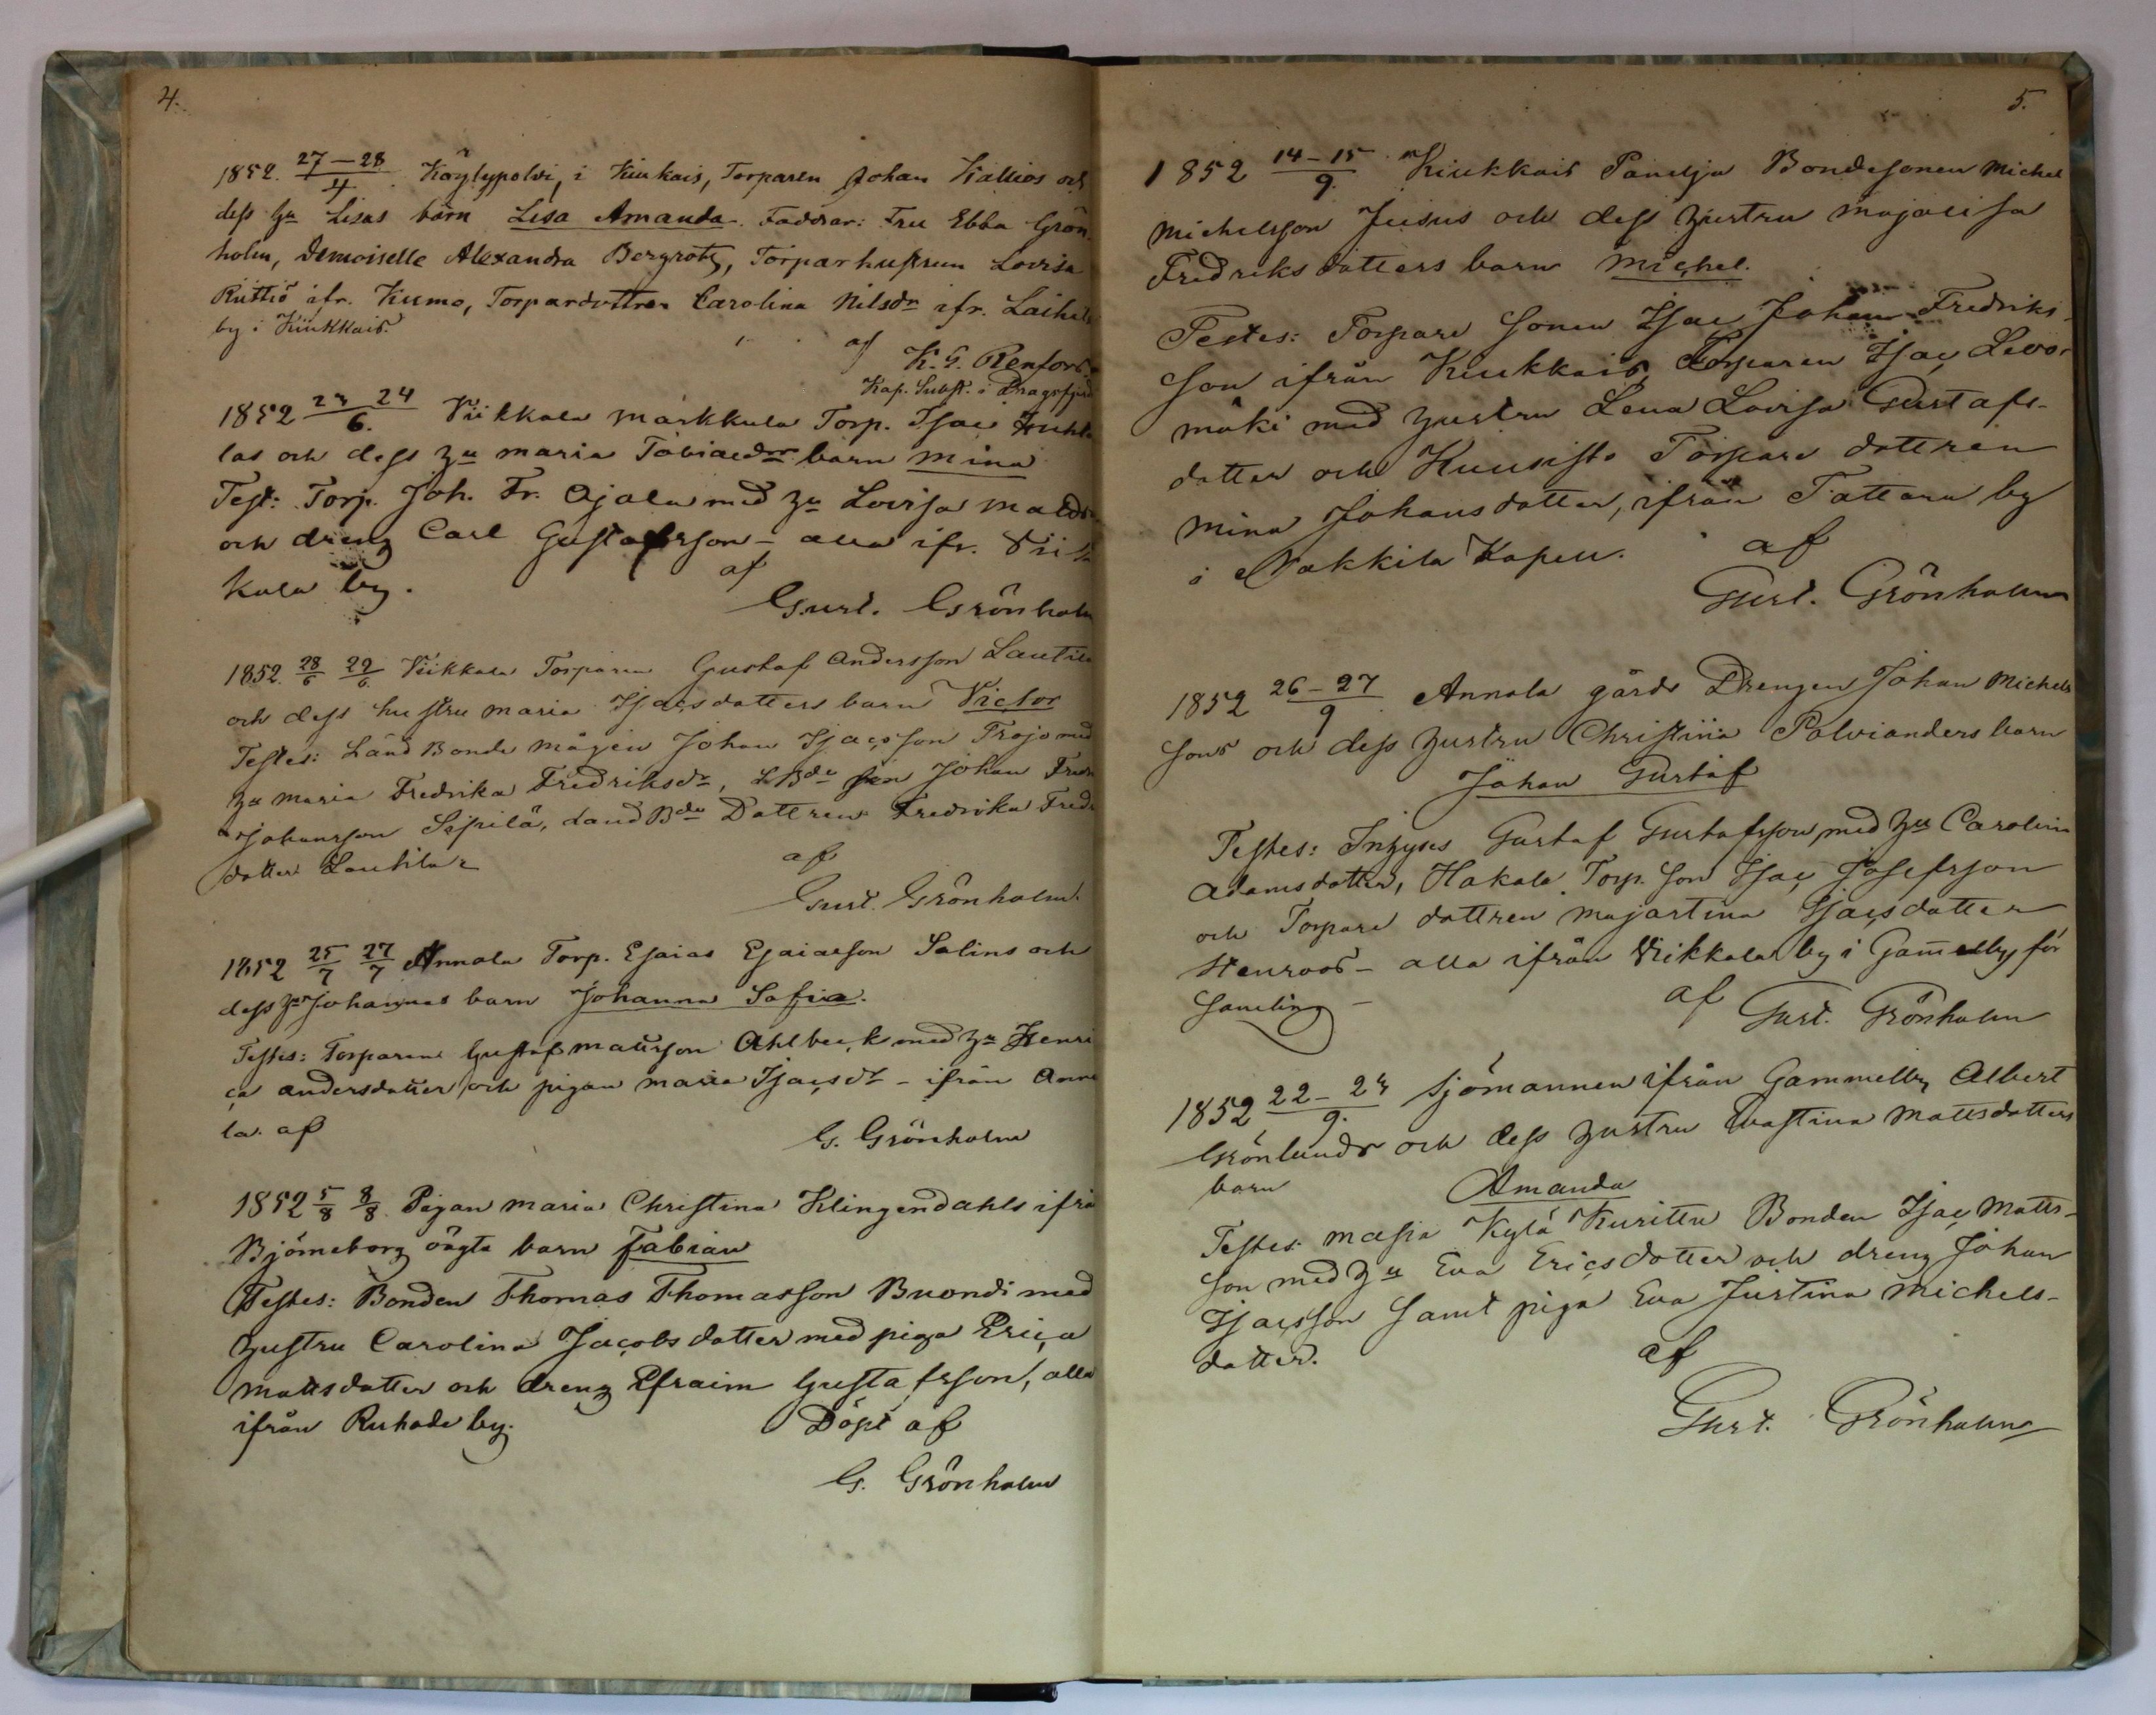 4.
1852. 27–28/4. Köylypolvi, i Kiukais, Torparen Johan Kallios och
dess hu Lisas barn Lisa Amanda. Faddrar: Fru Ebba Grön-
holm, Demoiselle Alexandra Bergroth, Torparhustrun Lovisa
ifr. Kumo, Torpardottren Carolina Nilsdr ifr.
by i Kiukkais.
af
K. G. Renfors
Kap. Subst. i Dragsfjerd
1852 23 24/6. Viikkala Markkula Torp. Isac
las och dess hu Maria Tobiaedr barn Mina
Test: Torp. Joh. Fr. Ajala med hu Lovisa Matdr
och dreng Carl Gustafsson – alla ifr. Viik
kala by.
af
Gust. Grönholm
1852. 28/6 29/6. Viikkala Torparen Gustaf Andersson Lautila
och dess hustru Maria Isacsdotters barn Victor
Testes: Land Bonde mågen Johan Isacsson Trojo med
hu Maria Fredrika Fredriksdr, LBde son Johan Fredr
Johansson Seppilä, Land Bde Dottren Fredrika Fredr
dotter Lautila
af
Gust. Grönholm.
1852 25/7 27/7 Annola Torp. Esaias Esaiasson Salins och
dess hu Johannas barn Johanna Sofia.
Testes: Torparen Gustaf Mattsson Ahlbeck med hu Henri
ca Andersdotter och pigan Maria Isacsdr – ifrån Anno
la. af
G. Grönholm
1852 5/8 8/8. Pigan Maria Christina Klingendahls ifrå
Björneborg oägta barn Fabian
Testes: Bonden Thomas Thomasson Buondi med
hustru Carolina Jacobsdotter med piga Erica
Mattsdotter och dreng Efraim Gustafsson, alla
ifrån Ruhade by.
Döpt af
G. Grönholm
5.
1852 14–15/9. Kiukkais Panelja Bondesonen Michel
Michelsson Juusus och dess hustru Majalisa
Fredriksdotters barn Michel.
Testes: Torpare Sonen Isac Johan Fredriks-
son ifrån Kiukkais, Torparen Isac Levo-
mäki med hustru Lena Lovisa Gustafs-
dotter och Kuusisto Torpare dottren
Mina Johansdotter, ifrån Tattara by
i Nakkila Kapell.
af
Gust. Grönholm
1852 26–27/9. Annola gårds Drengen Johan Michels
sons och dess hustru Christina Polvianders barn
Johan Gustaf
Testes: Inhyses Gustaf Gustafsson, med hu Carolina
Adamsdotter, Hakala Torp. Son Isac Josefsson
och Torpare dottren Majastina Isacsdotter
Stenroos – alla ifrån Viikkala by i Gammelby för
samling –
af
Gust. Grönholm
1852 22–23/9. Sjömannen ifrån Gammelby Albert
Grönlunds och dess hustru Wastina Mattsdotters
barn
Amanda
Testes: Masia Kylä Kuritta Bonden Isac Matts-
son med hu Eva Ericsdotter och dreng Johan
Isacsson samt piga Eva Justina Michels-
dotter.
af
Gust. Grönholm